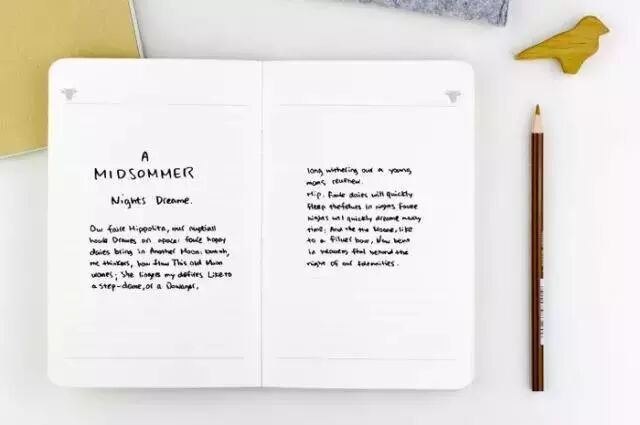 A
MIDSOMMER
Night's Dreame.
Our faire Hippolita, our nuptiall
houre Drawes on apace: foure happy
daies bring in Another Moon: but oh,
me thinkes, how slow This old Moon
wanes; She lingers my desires Like to
a step-dame, or a Dowager,
long withering out a young
mans revenew.
Hip. Foure daies will quickly
steep themselves in nights Foure
nights wil quickly dreame away
time: And the the Moone, like
to a silver bow, Now bent
in heaven shal behold the
night of our solemnities.